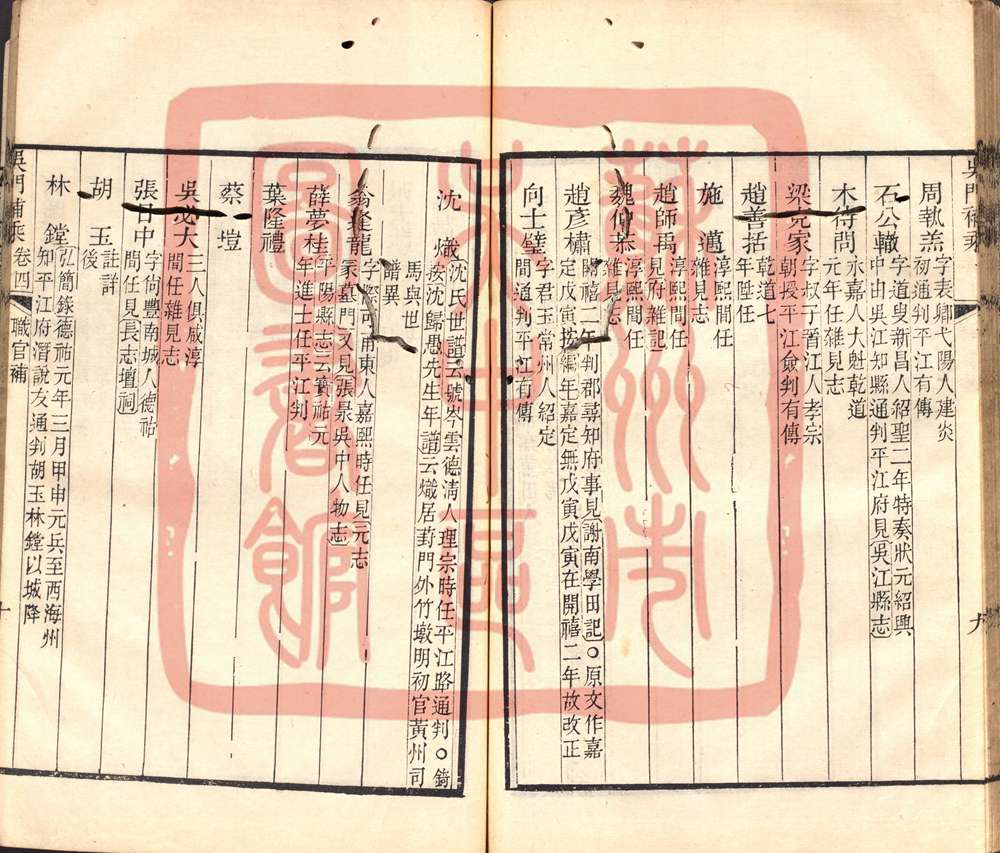 吳門補乘
周執羔 字表卿弋陽人建炎
初通判平江有傳
石公轍 字道叟新昌人紹聖二年特奏狀元紹興
中由吳江知縣通判平江府見吳江縣志
木待問 永嘉人大魁乾道
元年任雜見志
梁克家 字叔子晉江人孝宗
朝授平江僉判有傳
趙善括 乾道七
年陞任
施 邁 淳熙間任
雜見志
趙師禹 淳熙間任
見府雜記
魏仲恭 淳熙間任
雜見志
趙彥橚 開禧二年判郡尋知府事見謝南學田記○原文作嘉
定戊寅按編年嘉定無戊寅戊寅在開禧二年故改正
向士璧 字君玉常州人紹定
間通判平江有傳
九
沈 熾 沈氏世譜云號岑雲德淸人理宗時任平江路通判○錡
按沈歸愚先生年譜云熾居葑門外竹墩明初官黃州司
馬與世
譜異
翁逢龍 字際可甬東人嘉熙時任見元志
冢墓門又見張景吳中人物志
薛夢桂 平陽縣志云寶祐元
年進士任平江判
葉隆禮
蔡 塏
吳必大 三人俱咸淳
間任雜見志
張日中 字尙豐南城人德祐
間任見長志壇祠
胡 玉 註詳
後
林 鏜 弘簡錄德祐元年三月甲申元兵至西海州
知平江府潛說友通判胡玉林鏜以城降
吳門補乘 卷四 職官補 十
蘇州市
文中區
圖書館